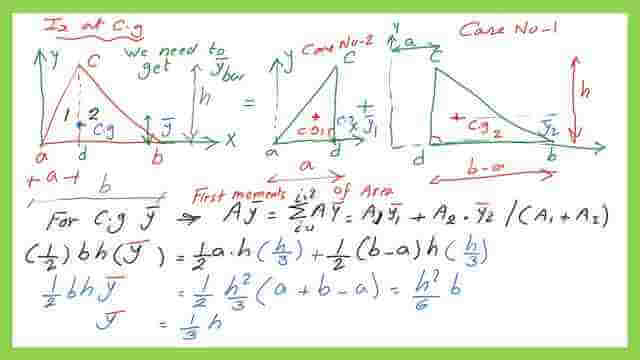 Ix at C.g
we need to
get ȳbar
y
C
h
1 2
C.g
ȳ
a d b x
a
b
=
Case No-2
y
C
C.g
x
ȳ1
a d
a
+
Case No-1
y
a
C
h
C.g2
ȳ2
d b
b-a
First moments of Area
For C.g ȳ ⇒ Aȳ = Σ i=1 i=2 Aȳ = A1ȳ1 + A2·ȳ2 /(A1+A2)
(1/2) bh(ȳ) = 1/2 a·h (h/3) + 1/2 (b-a)h (h/3)
1/2 bhȳ = 1/2 h²/3 (a+b-a) = h²/6 b
ȳ = 1/3 h